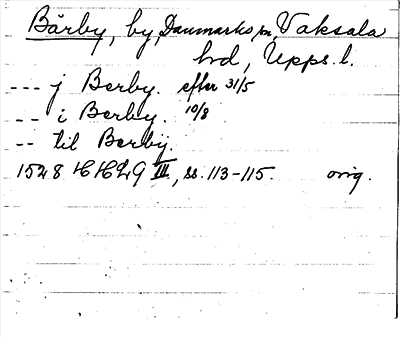 Bärby, by, Danmarks sn, Vaksala
hd, Upps. l.
--- j Berby. efter 31/5
-- i Berby. 10/8
-- til Berby.
1528 HHLG III, ss. 113-115. orig.